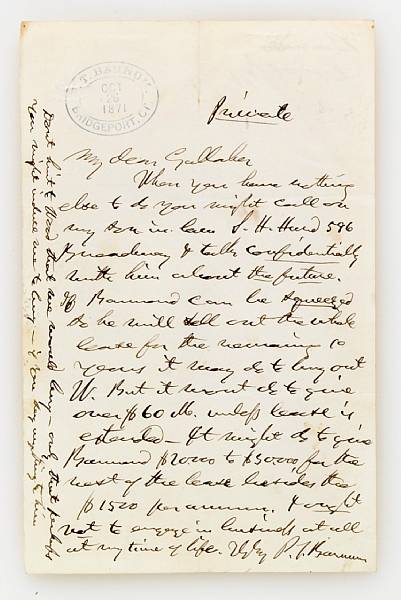 P. T. BARNUM.
OCT
26
1871
BRIDGEPORT, CT.
Private
My dear Gallaher
When you have nothing
else to do you might call on
my son in law S. H. Hurd 596
Broadway & talk confidentially
with him about the future.
If Barnard can be squeezed
so he will sell out the whole
lease for the remaining 10
years it may do to buy out
W. But it wont do to give
over $60 M. unless lease is
extended— It might do to give
Barnard $20000 to $30000 for the
rest of the lease besides the
$1500 per annum. I ought
not to engage in business at all
at my time of life. P. T. Barnum
Dont hint to Wood that we would buy— only that perhaps
you might induce me to buy— if you say anything to him